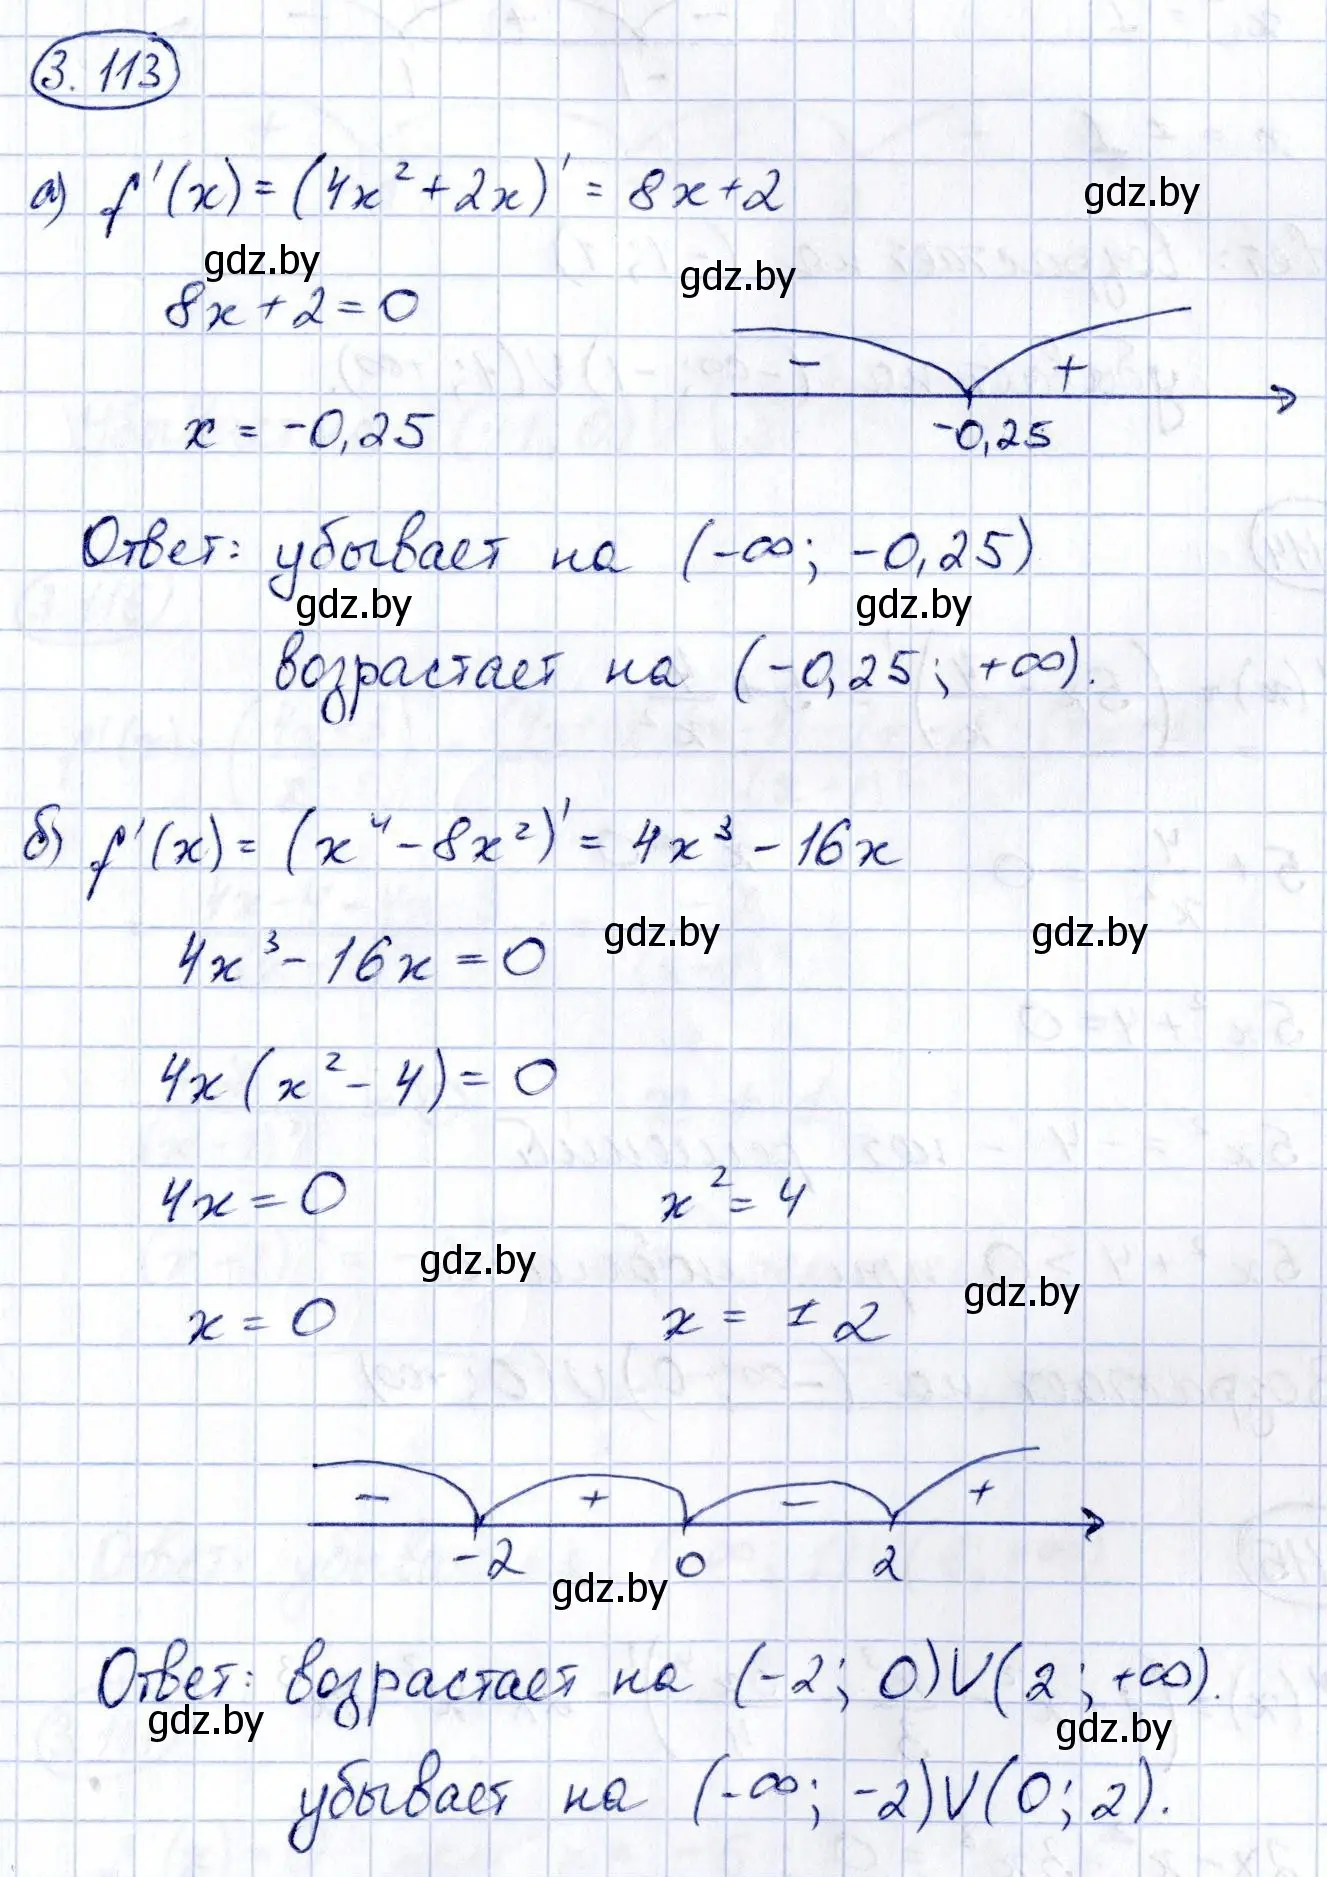 3.113
а) f'(x) = (4x² + 2x)' = 8x + 2
gdz.by
gdz.by
gdz.by
8x + 2 = 0
- +
x = -0,25
-0,25
Ответ: убывает на (-∞; -0,25)
gdz.by
gdz.by
возрастает на (-0,25; +∞).
б) f'(x) = (x⁴ - 8x²)' = 4x³ - 16x
gdz.by
gdz.by
4x³ - 16x = 0
4x(x² - 4) = 0
4x = 0 x² = 4
gdz.by
gdz.by
x = 0 x = ±2
- + - +
-2 0 2
gdz.by
Ответ: возрастает на (-2; 0)∪(2; +∞).
gdz.by
gdz.by
убывает на (-∞; -2)∪(0; 2).